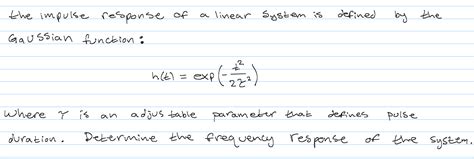 the impulse response of a linear system is defined by the
Gaussian function:
h(t) = exp(-t²/2τ²)
where τ is an adjustable parameter that defines pulse
duration. Determine the frequency response of the system.